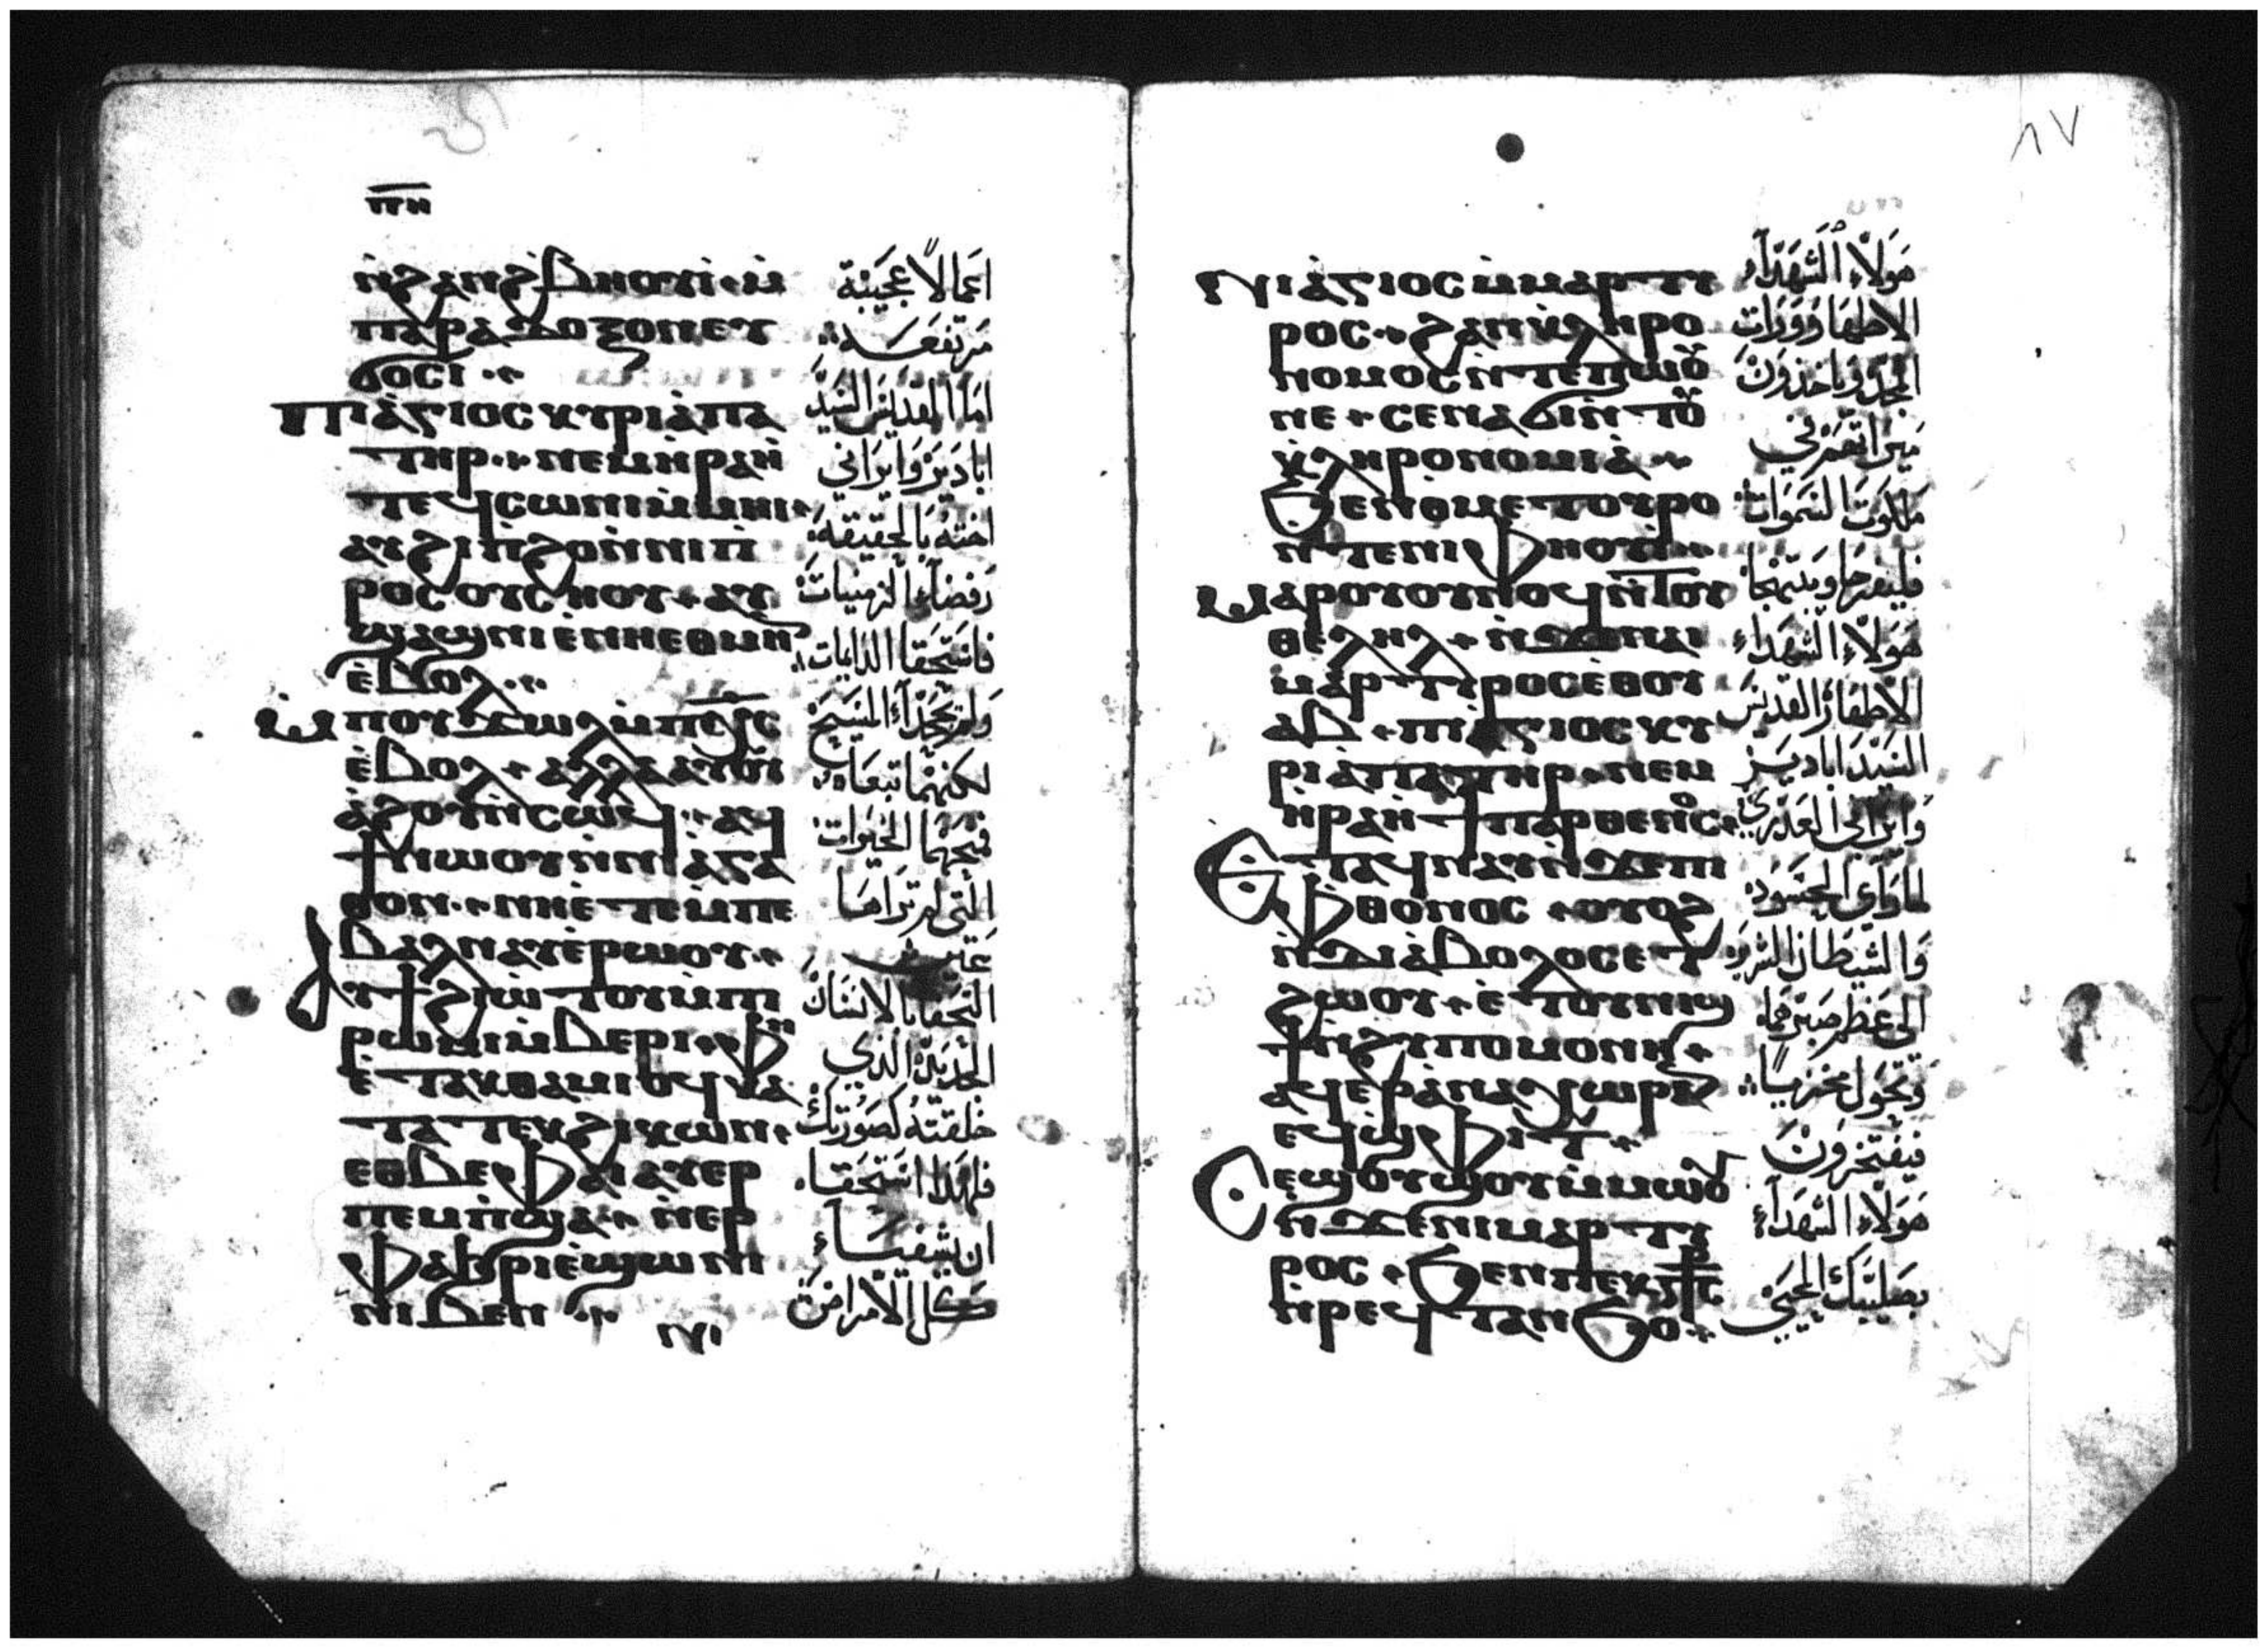 ⲡⲏ
ⲛ̀ϩⲁⲛϩ̀ⲃⲏⲟⲩⲓ̀ · ⲙ̀
ⲡⲁⲣⲁⲇⲟⲝⲟⲛⲉⲩ
ϭⲟⲥⲓ ·
ⲡⲓⲁ̀ⲅⲓⲟⲥ ⲕⲩⲣⲓⲁ̀ⲡⲁ
ⲧⲏⲣ · ⲛⲉⲙⲏ̀ⲣⲁⲏ̀
ⲧⲉϥⲥⲱⲛⲓⲙ̀ⲙⲏⲓ ·
ⲁⲩϩⲓⲡ̀ϩⲟⲛ̀ⲛⲓⲡ̀
ⲣⲟⲥⲟⲩⲥⲏⲟⲩ · ⲁⲩ
ϣⲁϣⲛⲓⲉ̀ⲛⲏⲉⲑⲙⲏⲛ
ⲉ̀ⲃⲟⲗ ·
ⲙ̀ⲡⲟⲩϫⲱⲗⲙ̀ⲡⲭ̅ⲥ̅
ⲉ̀ⲃⲟⲗ · ⲁⲗⲗⲁⲁⲩⲟⲓ
ⲁ̀ϩⲟⲩⲛ̀ⲥⲱϥ · ⲁϥ
ϯⲛⲱⲟⲩⲛ̀ⲛⲓⲁ̀ⲅⲁ
ⲑⲟⲛ · ⲛⲏⲉ̀ⲧⲉⲙ̀ⲡⲉ
ⲃⲁⲗⲛⲁⲩⲉ̀ⲣⲱⲟⲩ ·
ⲁⲩϯϩⲓⲱ̀ⲧⲟⲩⲙ̀ⲡⲓ
ⲣⲱⲙⲓⲙ̀ⲃⲉⲣⲓ · ⲫⲏ
ⲉ̀ⲧⲁⲕⲑⲁⲙⲓⲟϥⲕⲁ
ⲧⲁⲧⲉⲕϩⲓⲕⲱⲛ ·
ⲉⲑⲃⲉⲫⲁⲓⲁⲩⲉⲣ
ⲡⲉⲙⲡ̀ϣⲁ · ⲛ̀ⲉⲣ
ⲫⲁϧⲣⲓⲉ̀ϣⲱⲛⲓ
ⲛⲓⲃⲉⲛ ·
ⲛⲓ
اعمالا عجيبة
مرتفعه
اما القديس السيد
ابادير وايرائي
اخته بالحقيقه
رفضا الزمنيات
فاستحقا الدايمات
ولم يجحدا المسيح
لكنهما تبعاه
فمنحهما الخيرات
التي لم تراها
عين
التحفا بالانسان
الجديد الذي
خلقته كصورتك
فلهذا استحقا
ان يشفياء
كل الامراض
٨٧
ⲛⲓⲁ̀ⲅⲓⲟⲥ ⲙ̀ⲙⲁⲣⲧⲩ
ⲣⲟⲥ · ϩⲁⲛⲕ̀ⲗⲏⲣⲟ
ⲛⲟⲙⲟⲥⲛ̀ⲧⲉⲡ̀ⲱⲟⲩ
ⲛⲉ · ⲥⲉⲛⲁϭⲓⲛ̀ⲧⲟⲩ
ⲕ̀ⲗⲏⲣⲟⲛⲟⲙⲓⲁ̀ ·
ϧⲉⲛⲑⲙⲉⲧⲟⲩⲣⲟ
ⲛ̀ⲧⲉⲛⲓⲫⲏⲟⲩⲓ̀ ·
ⲙⲁⲣⲟⲩⲟⲩⲛⲟϥⲛ̀ⲧⲟⲩ
ⲑⲉⲗⲏⲗ · ⲛ̀ϫⲉⲛⲁⲓ
ⲙⲁⲣⲧⲩⲣⲟⲥⲉ̀ⲑⲟⲩ
ⲁⲃ · ⲡⲓⲁ̀ⲅⲓⲟⲥ ⲕⲩ
ⲣⲓⲁ̀ⲡⲁⲧⲏⲣ · ⲛⲉⲙ
ⲏ̀ⲣⲁⲏ̀ϯⲡⲁⲣⲑⲉⲛⲟⲥ ·
ⲉⲧⲁϥⲛⲁⲩⲛ̀ϫⲉⲡⲓ
ⲫⲑⲟⲛⲟⲥ · ⲟⲩⲟϩ
ⲛ̀ⲇⲓⲁ̀ⲃⲟⲗⲟⲥⲉⲧ
ϩⲱⲟⲩ · ⲉ̀ⲧⲟⲩⲛⲓϣ
ϯⲛ̀ϩⲩⲡⲟⲙⲟⲛⲏ ·
ⲁϥⲉⲣⲁ̀ⲛⲁⲭⲱⲣⲓⲛ
ⲉϥϣ̀ⲫⲓⲧ ·
ⲥⲉϣⲟⲩϣⲟⲩⲙ̀ⲙⲱⲟⲩ
ⲛ̀ϫⲉⲛⲓⲙⲁⲣⲧⲩ
ⲣⲟⲥ · ϧⲉⲛⲡⲉⲕⲥ̅ⲧ̅ⲥ̅
ⲛ̀ⲣⲉϥⲧⲁⲛϧⲟ ·
هولاء الشهداء
الاطهار وراث
المجد وياخذون
ميراثهم في
ملكوت السموات
فليفرحا ويبتهجا
هولاء الشهداء
الاطهار القديس
السيد ابادير
وايرائي العذري
لما راي الحسود
والشيطان الشرير
الي عظم صبرهما
وتحول مخزيا
فيفتخرون
هولاء الشهداء
بصليبك المحيي